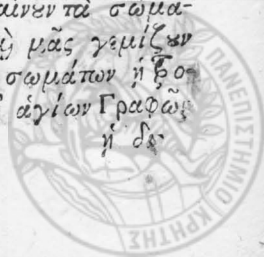 αίνουν τὰ σωμα-
μᾶς γεμίζουν
σωμάτων ἡ
ἁγίων Γραφῶν
ἡ δὲ
ΠΑΝΕΠΙΣΤΗΜΙΟ ΚΡΗΤΗΣ